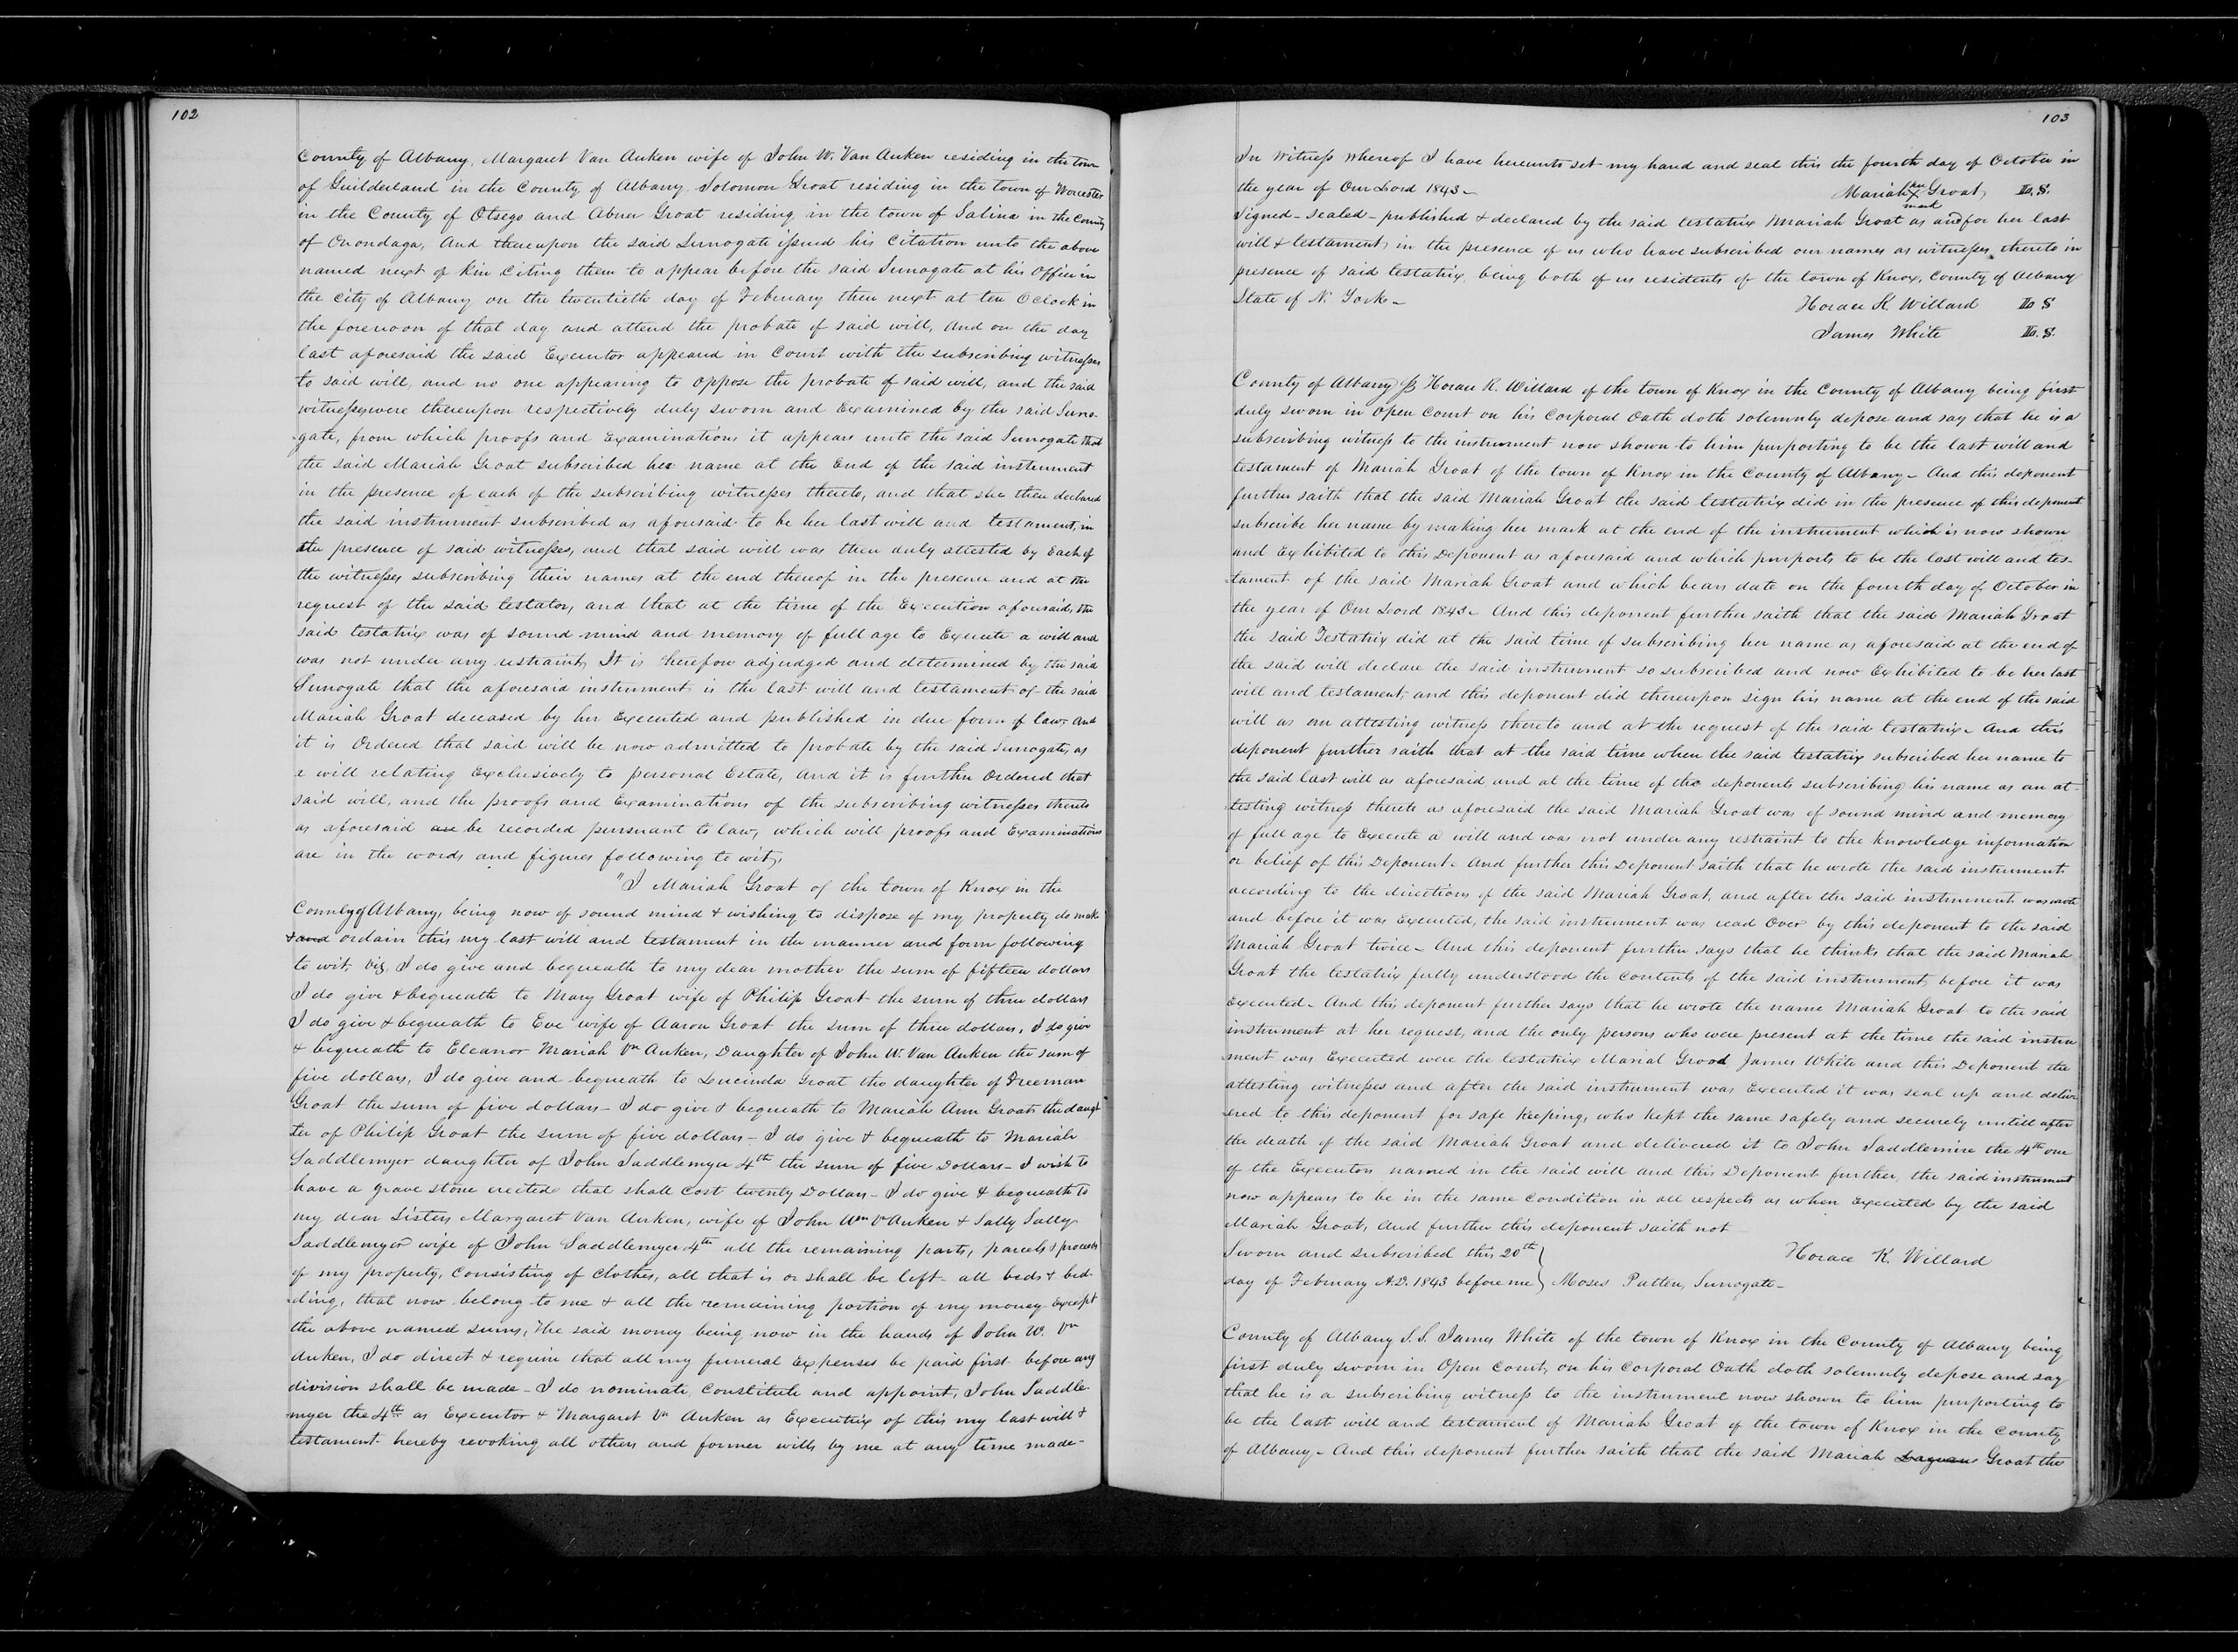 102
County of Albany, Margaret Van Auken wife of John W. Van Auken residing in the town
of Guilderland in the County of Albany, Solomon Groat residing in the town of Worcester
in the County of Otsego and Abner Groat residing in the town of Salina in the County
of Onondaga, And thereupon the said Surrogate issued his Citation unto the above
named next of kin Citing them to appear before the said Surrogate at his Office in
the City of Albany on the twentieth day of February then next at ten O clock in
the forenoon of that day and attend the probate of said will, And on the day
last aforesaid the said Executor appeard in Court with the subscribing witnesses
to said will, and no one appearing to oppose the probate of said will, and the said
witnesses were thereupon respectively duly sworn and Examined by the said Surro-
-gate, from which proofs and Examinations it appears unto the said Surrogate that
the said Mariah Groat subscribed her name at the End of the said instrument
in the presence of each of the subscribing witnesses thereto, and that she then declared
the said instrument subscribed as aforesaid to be her last will and testament, in
the presence of said witnesses, and that said will was then duly attested by Each of
the witnesses subscribing their names at the end thereof in the presence and at the
request of the said testator, and that at the time of the Execution aforesaid, the
said testatrix was of sound mind and memory of full age to Execute a will and
was not under any restraint, It is therefore adjudged and determined by the said
Surrogate that the aforesaid instrument is the last will and testament of the said
Mariah Groat deceased by her Executed and published in due form of law and
it is Ordered that said will be now admitted to probate by the said Surrogate, as
a will relating Exclusively to personal Estate, And it is further Ordered that
said will, and the proofs and Examinations of the subscribing witnesses thereto
as aforesaid are be recorded pursuant to law, which will proofs and Examinations
are in the words and figures following to wit,
"I Mariah Groat of the town of Knox in the
County of Albany, being now of sound mind & wishing to dispose of my property do make
& and ordain this my last will and testament in the manner and form following
to wit, viz, I do give and bequeath to my dear mother the sum of fifteen dollars
I do give & bequeath to Mary Groat wife of Philip Groat the sum of three dollars
I do give & bequeath to Eve wife of Aaron Groat the sum of three dollars, I do give
& bequeath to Eleanor Mariah Vn Auken, Daughter of John W. Van Auken the sum of
five dollars, I do give and bequeath to Lucinda Groat the daughter of Freeman
Groat the sum of five dollars - I do give & bequeath to Mariah Ann Groat the daugh
ter of Philip Groat the sum of five dollars - I do give & bequeath to Mariah
Saddlemyer daughter of John Saddlemyer 4th the sum of five Dollars - I wish to
have a grave stone erected that shall cost twenty Dollars - I do give & bequeath to
my dear Sisters Margaret Van Auken, wife of John Wm Vn Auken & Sally Sally
Saddlemyer wife of John Saddlemyer 4th all the remaining parts, parcels & proceeds
of my property, Consisting of Clothes, all that is or shall be left - all beds & bed-
-ding, that now belong to me & all the remaining portion of my money - Except
the above named sums, the said money being now in the hands of John W. Vn
Auken, I do direct & require that all my funeral Expenses be paid first before any
division shall be made - I do nominate, constitute and appoint, John Saddle-
-myer the 4th as Executor & Margaret Vn Auken as Executrix of this my last will &
testament - hereby revoking all others and former wills by me at any time made -
103
In Witness whereof I have hereunto set my hand and seal this the fourth day of October in
the year of Our Lord 1843 - Mariah her X mark Groat, L.S.
Signed - sealed - published & declared by the said testatrix Mariah Groat as and for her last
will & testament, in the presence of us who have subscribed our names as witnesses, thereto in
presence of said testatrix, being both of us residents of the town of Knox, County of Albany
State of N. York - Horace K. Willard L S
James White L.S.
County of Albany Ss Horace K. Willard of the town of Knox in the County of Albany being first
duly sworn in open Court on his Corporal Oath doth solemnly depose and say that he is a
subscribing witness to the instrument now shown to him purporting to be the last will and
testament of Mariah Groat of the town of Knox in the County of Albany - And this deponent
further saith that the said Mariah Groat the said testatrix did in the presence of this deponent
subscribe her name by making her mark at the end of the instrument which is now shown
and Exhibited to this Deponent as aforesaid and which purports to be the last will and tes-
-tament of the said Mariah Groat and which bears date on the fourth day of October in
the year of Our Lord 1843 - And this deponent further saith that the said Mariah Groat
the said Testatrix did at the said time of subscribing her name as aforesaid at the end of
the said will declare the said instrument so subscribed and now Exhibited to be her last
will and testament, and this deponent did thereupon sign his name at the end of the said
will as an attesting witness thereto and at the request of the said testatrix - And this
deponent further saith that at the said time when the said testatrix subscribed her name to
the said last will as aforesaid, and at the time of the deponents subscribing his name as an at-
-testing witness thereto as aforesaid the said Mariah Groat was of sound mind and memory
of full age to Execute a will and was not under any restraint to the knowledge information
or belief of this Deponent - And further this Deponent saith that he wrote the said instrument
according to the directions of the said Mariah Groat, and after the said instrument was wrote
and before it was Executed, the said instrument was read Over by this deponent to the said
Mariah Groat twice - And this deponent further says that he thinks that the said Mariah
Groat the testatrix fully understood the Contents of the said instrument, before it was
Executed - And this deponent further says that he wrote the name Mariah Groat to the said
instrument at her request, and the only persons who were present at the time the said instru
-ment was Executed were the testatrix Marial Grood James White and this Deponent the
attesting witnesses and after the said instrument was Executed it was seal up and deliv
-ered to this deponent for safe keeping, who kept the same safely and securely untill after
the death of the said Mariah Groat and delivered it to John Saddlemire the 4th one
of the Executors named in the said will and this Deponent further, the said instrument
now appears to be in the same condition in all respects as when Executed by the said
Mariah Groat, And further this deponent saith not -
Sworn and subscribed this 20th Horace K. Willard
day of February A.D. 1843 before me } Moses Patten, Surrogate -
County of Albany S.S. James White of the town of Knox in the County of Albany being
first duly sworn in Open Court, on his Corporal Oath doth solemnly depose and say
that he is a subscribing witness to the instrument now shown to him purporting to
be the last will and testament of Mariah Groat of the town of Knox in the County
of Albany - And this deponent further saith that the said Mariah Groat the